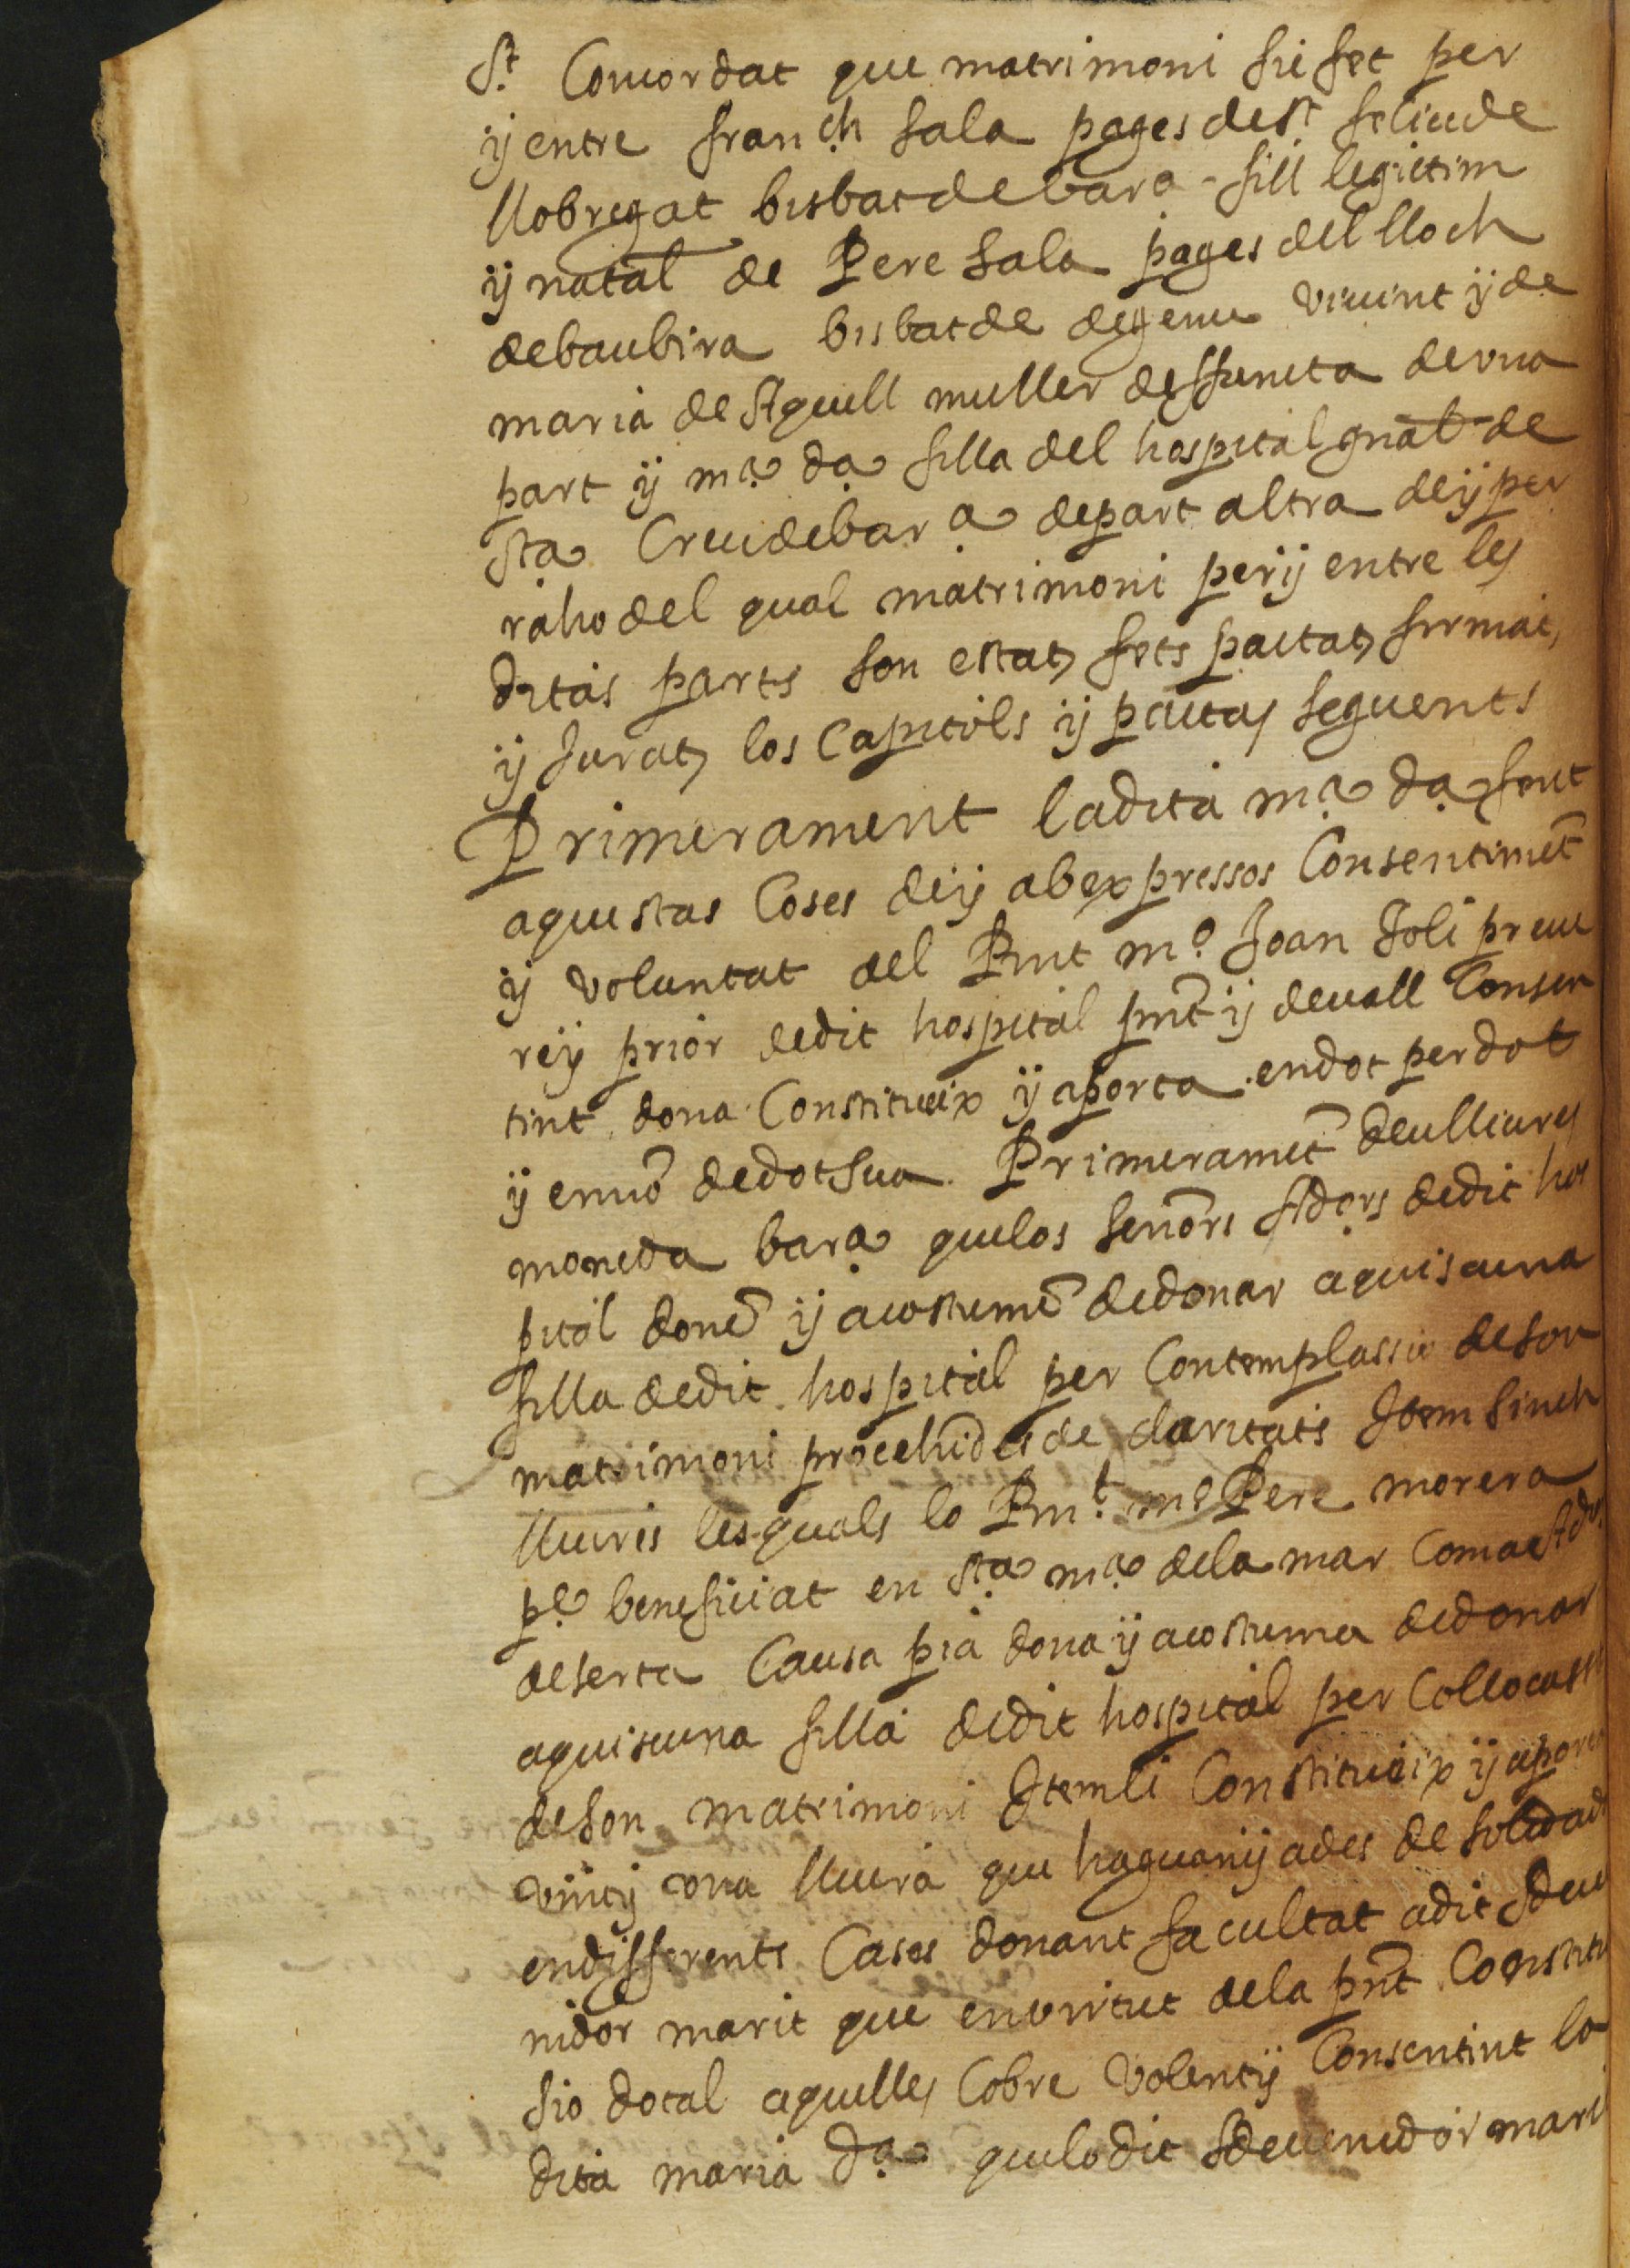 St Concordat que matrimoni sie fet per
ij entre franch Sala pages de st feliu de
llobregat bisbat de bara fill legittim
ij natal de Pere Sala pages del lloch
de baubira bisbat de degenu vivint ij de
maria de Aguell muller deffuncta de vna
part ij ma da filla del hospital gnal de
sta Creu de bara de part altra de ij per
raho del qual matrimoni per ij entre les
ditas parts son estats fets pactats fermats
ij Jurats los Capitols ij pactes seguents
Primerament la dita ma da fent
aquestas Coses de ij ab expressos Consentimet
ij voluntat del Rnt mo Joan Joli preue
re ij prior de dit hospital pnt ij deuall Consen
tint dona Constitueix ij aporta en dot per dot
ij en no de dot sua Primeramet deu lliures
moneda bara que los senors Adors de dit hos
pital done ij acostume de donar a quiscuna
filla de dit hospital per Contemplassio de son
matrimoni procehides de claritats Item Sinch
lliures les quals lo Rnt mo Pere morera
pe beneficiat en sta ma de la mar Com a Ador
de serta Causa pia dona ij acostuma de donar
a quiscuna filla de dit hospital per Collocassi
de son matrimoni Item li Constitueix ij aporta
vint ij vna lliura que ha guanijades de soldad
en differents Cases donant facultat a dit Sdeue
nidor marit que en virtut de la pnt Constitu
sio dotal aquelles Cobre volent ij Consentint la
dita maria da que lo dit Sdeuenidor mari